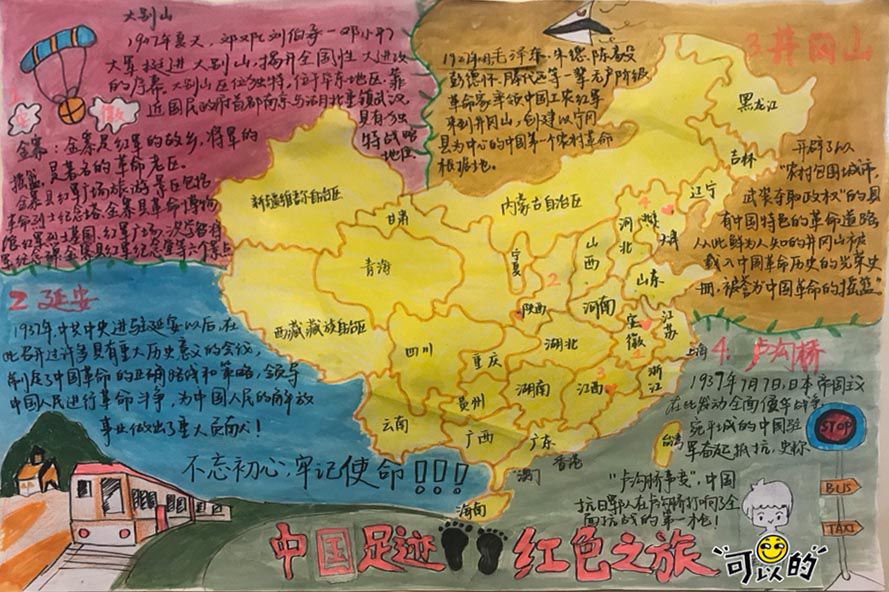 大别山
1947年夏天，邓小平
大军挺进大别山，揭开全国性大进攻
的序幕。大别山区位独特，位于华东地区，靠
近国民的府首都南京与沿月北重镇武汉，
具有独
特战略
地区
1 安徽
金寨：金寨是红军的故乡，将军的
摇篮，是著名的革命老区。
金寨县红军广场旅游景区包括
革命烈士纪念塔、金寨县革命博物
馆、红军烈士墓园、红军广场、
军纪念碑、金寨县红军纪念堂等六个景点
3 井冈山
1927年10月毛泽东、朱德、陈毅、
彭德怀、滕代远等一辈无产阶级
革命家率领中国工农红军
来到井冈山，创建以宁冈
县为中心的中国第一个农村革命
根据地。
开辟了以
"农村包围城市，
武装夺取政权"的具
有中国特色的革命道路，
从此鲜为人知的井冈山被
载入中国革命历史的光荣史
册，被誉为中国革命的摇篮"
黑龙江
吉林
辽宁
新疆维吾尔自治区
甘肃
内蒙古自治区
青海
宁夏
山西
河北
4
天津
山东
2
陕西
河南
西藏藏族自治区
四川
重庆
湖北
安徽
1
江苏
上海
浙江
湖南
3
江西
贵州
云南
广西
广东
台湾
香港
澳门
海南
2 延安
1937年，中共中央进驻延安以后，在
此召开过许多具有重大历史意义的会议，
制定了中国革命的正确路线和策略，领导
中国人民进行革命斗争，为中国人民的解放
事业做出了重大贡献！
不忘初心，牢记使命！！！
4. 卢沟桥
1937年7月7日，日本帝国主义
在此发动全面侵华战争，
宛平城的中国驻
军奋起抵抗，史称
"卢沟桥事变"，中国
抗日军队在卢沟桥打响了全
面抗战的第一枪！
STOP
BUS
TAXI
中国足迹 红色之旅
"可以的"